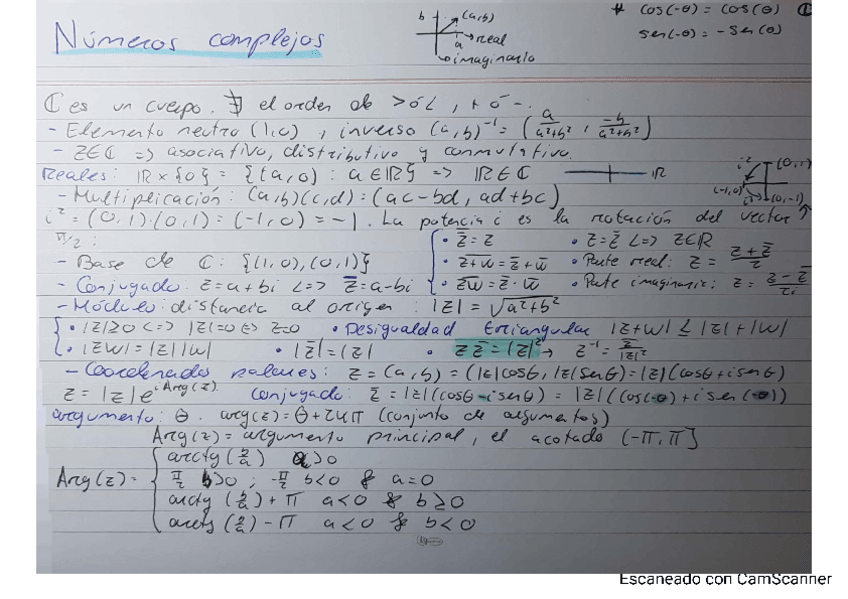 Números complejos
b (a,b)
a → real
↳ imaginario
* cos(-θ) = cos(θ)
sen(-θ) = -sen(θ)
ℂ es un cuerpo. ∄ el orden de > ó <, + ó -.
- Elemento neutro (1,0), inverso (a,b)⁻¹ = (a/(a²+b²), -b/(a²+b²))
- z∈ℂ => asociativo, distributivo y conmutativo.
Reales: ℝ×{0} = {(a,0) : a∈ℝ} => ℝ∈ℂ ℝ
i² (0,1)
(-1,0) i³ (0,-1)
- Multiplicación: (a,b)(c,d) = (ac-bd, ad+bc)
i² = (0,1)·(0,1) = (-1,0) = -1. La potencia i es la rotación del vector ↑
π/2:
• z̿ = z • z = z̄ <=> z∈ℝ
- Base de ℂ: {(1,0),(0,1)} • z+w̅ = z̄ + w̄ • Parte real: z = (z+z̄)/2
- Conjugado: z = a+bi <=> z̄ = a-bi • z̅w̅ = z̄·w̄ • Parte imaginaria: z = (z-z̄)/2i
- Módulo: distancia al origen: |z| = √(a²+b²)
• |z|≥0 <=> |z|=0 <=> z=0 • Desigualdad triangular |z+w| ≤ |z|+|w|
• |zw| = |z||w| • |z̄| = |z| • z z̄ = |z|² → z⁻¹ = z̄/|z|²
- Coordenadas polares: z = (a,b) = (|z|cosθ, |z|senθ) = |z|(cosθ + i senθ)
z = |z| e^(i Arg(z)) Conjugado: z̄ = |z|(cosθ - i senθ) = |z|((cos(-θ) + i sen(-θ))
argumento: θ. arg(z) = θ + 2kπ (conjunto de argumentos)
Arg(z) = argumento principal, el acotado (-π, π]
arctg(b/a) a>0
Arg(z) = π/2 b>0 ; -π/2 b<0 & a=0
arctg(b/a) + π a<0 & b≥0
arctg(b/a) - π a<0 & b<0
Escaneado con CamScanner